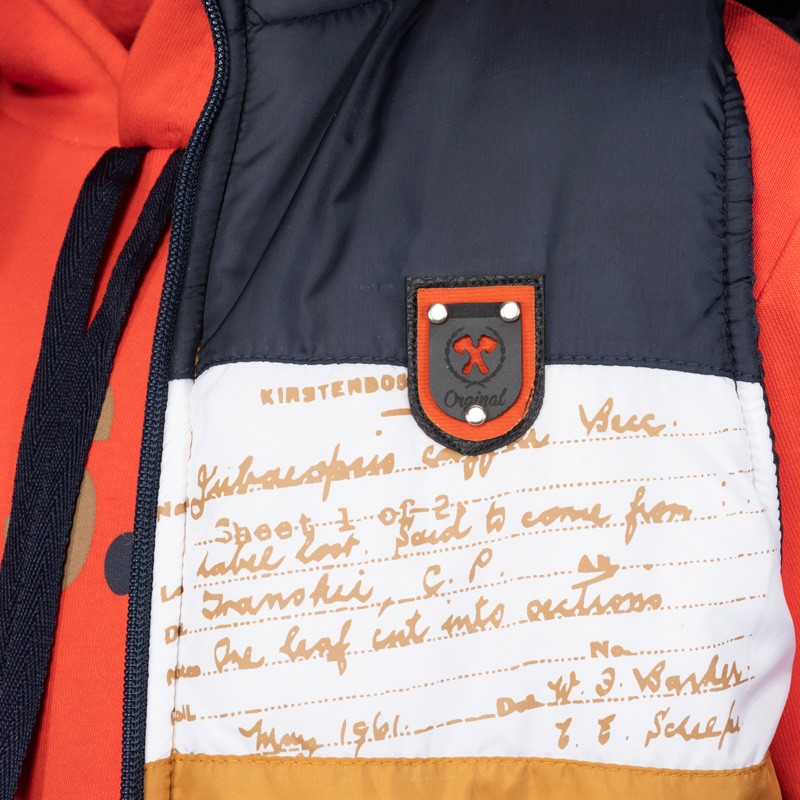 Orginal
KIRSTENBOS
Jubaeopsis caffra Becc.
Sheet 1 of 2
Label lost. Said to come from
Transkei, C. P.
One leaf cut into sections
No.
Det. W. F. Barker
May 1961.
E. E. Schelpe